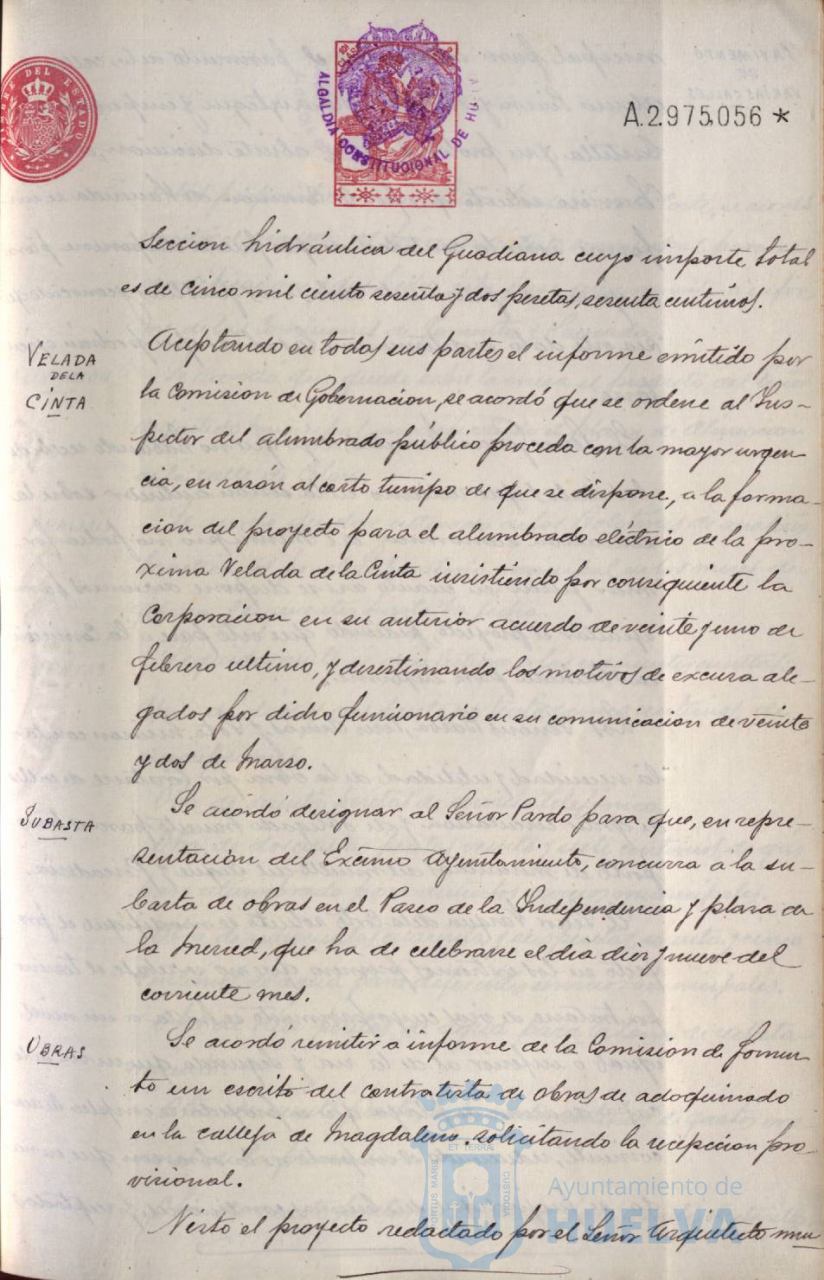 TIMBRE DEL ESTADO
ALCALDIA CONSTITUCIONAL DE HU
A.2.975.056 *
Seccion hidráulica del Guadiana cuyo importe total
es de cinco mil ciento sesenta y dos pesetas, sesenta centimos.
VELADA
DE LA
CINTA
Aceptando en todas sus partes el informe emitido por
la Comision de Gobernacion, se acordó que se ordene al Ins-
pector del alumbrado público proceda con la mayor urgen-
cia, en razón al corto tiempo de que se dispone, a la forma-
cion del proyecto para el alumbrado eléctrico de la pro-
xima Velada de la Cinta insistiendo por consiguiente la
Corporacion en su anterior acuerdo de veinte y uno de
febrero ultimo, y desestimando los motivos de excusa ale-
gados por dicho funcionario en su comunicacion de veinte
y dos de Marzo.
SUBASTA
Se acordó designar al Señor Pardo para que, en repre-
sentación del Excmo Ayuntamiento, concurra á la su-
basta de obras en el Paseo de la Independencia y plaza de
la Merced, que ha de celebrarse el dia diez y nueve del
corriente mes.
OBRAS
Se acordó remitir a informe de la Comision de fomen-
to un escrito del contratista de obras de adoquinado
en la calleja de Magdaleno, solicitando la recepcion pro-
visional.
Visto el proyecto redactado por el Señor Arquitecto mu
PORTUS MARIS ET TERRÆ CUSTODIA
Ayuntamiento de
HUELVA